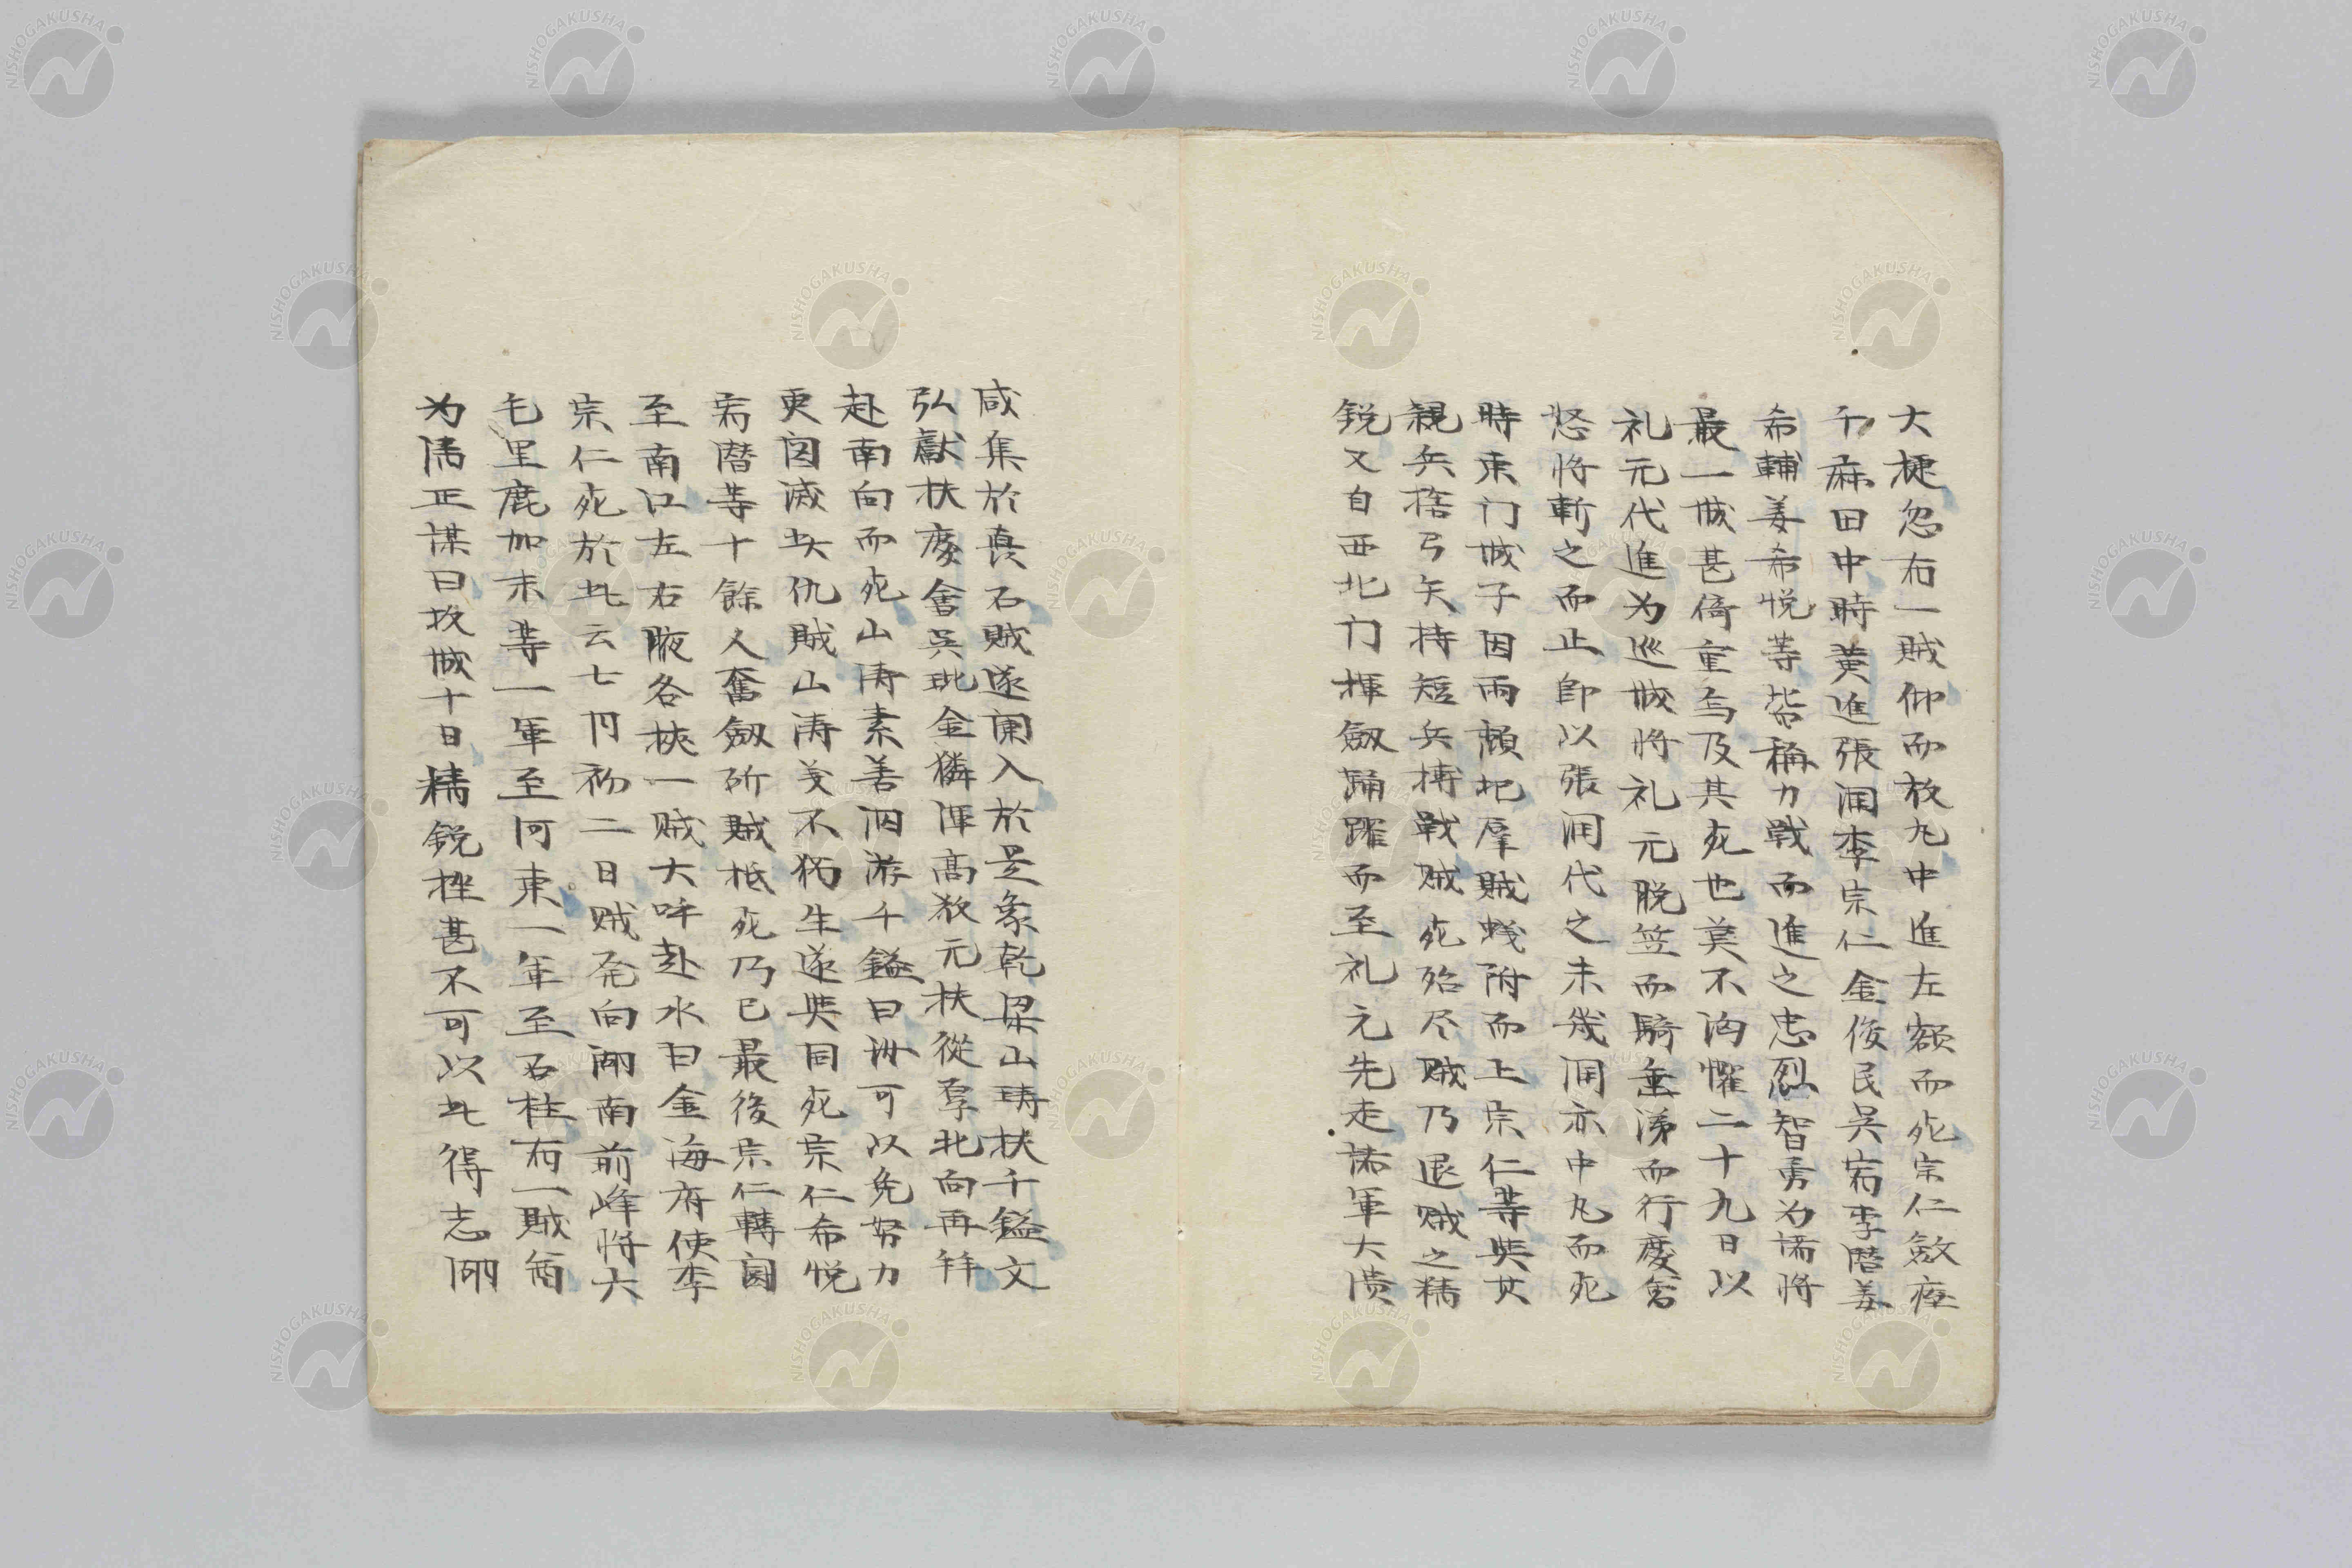 大捷忽有一賊仰而放丸中進左額而死宗仁斂瘞
千麻田中時黄進張润李宗仁金俊民吳宥李曆姜
希輔姜希悅等皆稱力戰而進之忠烈智勇为諸將
最一城甚倚重焉及其死也莫不洶懼二十九日以
礼元代進为巡城将礼元脱笠而騎垂涕而行慶会
怒将斬之而止即以張润代之未幾润亦中丸而死
時東门城子因雨頽圮羣賊蟻附而上宗仁等與其
親兵捨弓矢持短兵搏戰賊死殆尽賊乃退賊之精
鋭又自西北门揮劔踊躍而至礼元先走諸軍大潰
咸集於矗石賊遂闌入於是象乾梁山璹扶千鎰文
弘獻扶慶會吳玭金獜渾高敬元扶從厚北向再拜
赴南向而死山涛素善泅游千鎰曰洲可以免努力
更图滅此仇賊山涛義不独生遂與同死宗仁希悅
宥曆等十餘人奮劔斫賊抵死乃已最後宗仁轉闘
至南江左右腋各挾一賊大呼赴水曰金海府使李
宗仁死於此云七月初二日賊発向湖南前峰将六
毛里鹿加未等一軍至河東一軍至石柱有一賊酋
为儒正謀曰攻城十日精鋭挫甚不可以此得志湖